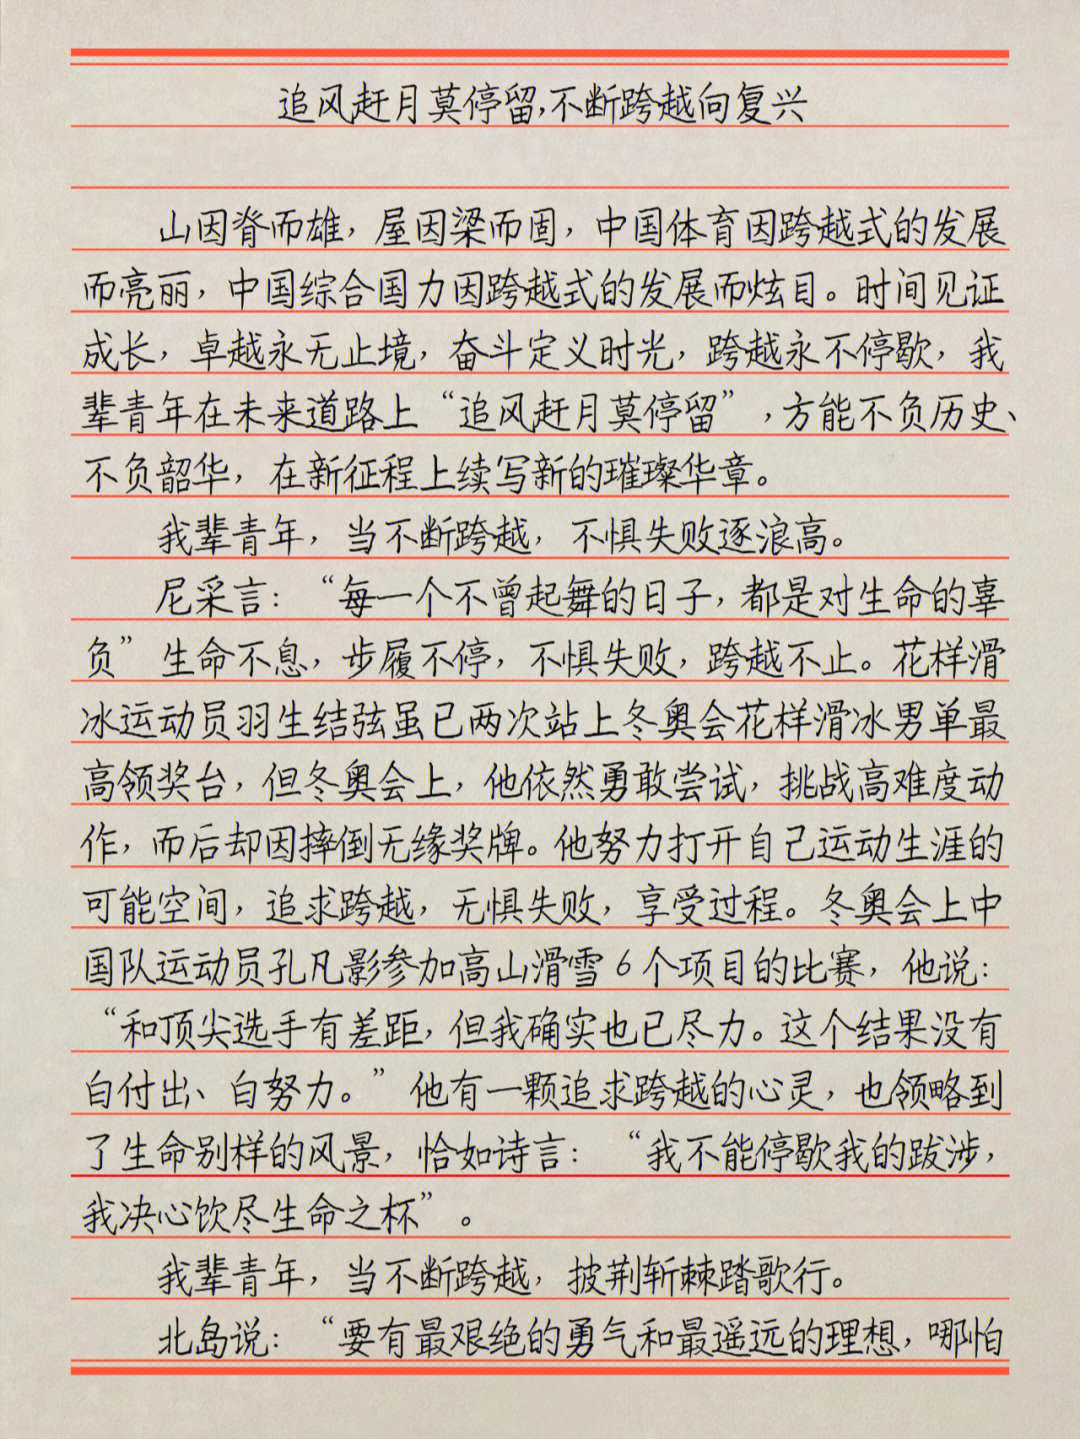 追风赶月莫停留,不断跨越向复兴
山因脊而雄，屋因梁而固，中国体育因跨越式的发展
而亮丽，中国综合国力因跨越式的发展而炫目。时间见证
成长，卓越永无止境，奋斗定义时光，跨越永不停歇，我
辈青年在未来道路上“追风赶月莫停留”，方能不负历史、
不负韶华，在新征程上续写新的璀璨华章。
我辈青年，当不断跨越，不惧失败逐浪高。
尼采言：“每一个不曾起舞的日子，都是对生命的辜
负”生命不息，步履不停，不惧失败，跨越不止。花样滑
冰运动员羽生结弦虽已两次站上冬奥会花样滑冰男单最
高领奖台，但冬奥会上，他依然勇敢尝试，挑战高难度动
作，而后却因摔倒无缘奖牌。他努力打开自己运动生涯的
可能空间，追求跨越，无惧失败，享受过程。冬奥会上中
国队运动员孔凡影参加高山滑雪6个项目的比赛，他说：
“和顶尖选手有差距，但我确实也已尽力。这个结果没有
白付出、白努力。”他有一颗追求跨越的心灵，也领略到
了生命别样的风景，恰如诗言：“我不能停歇我的跋涉，
我决心饮尽生命之杯”。
我辈青年，当不断跨越，披荆斩棘踏歌行。
北岛说：“要有最艰绝的勇气和最遥远的理想，哪怕